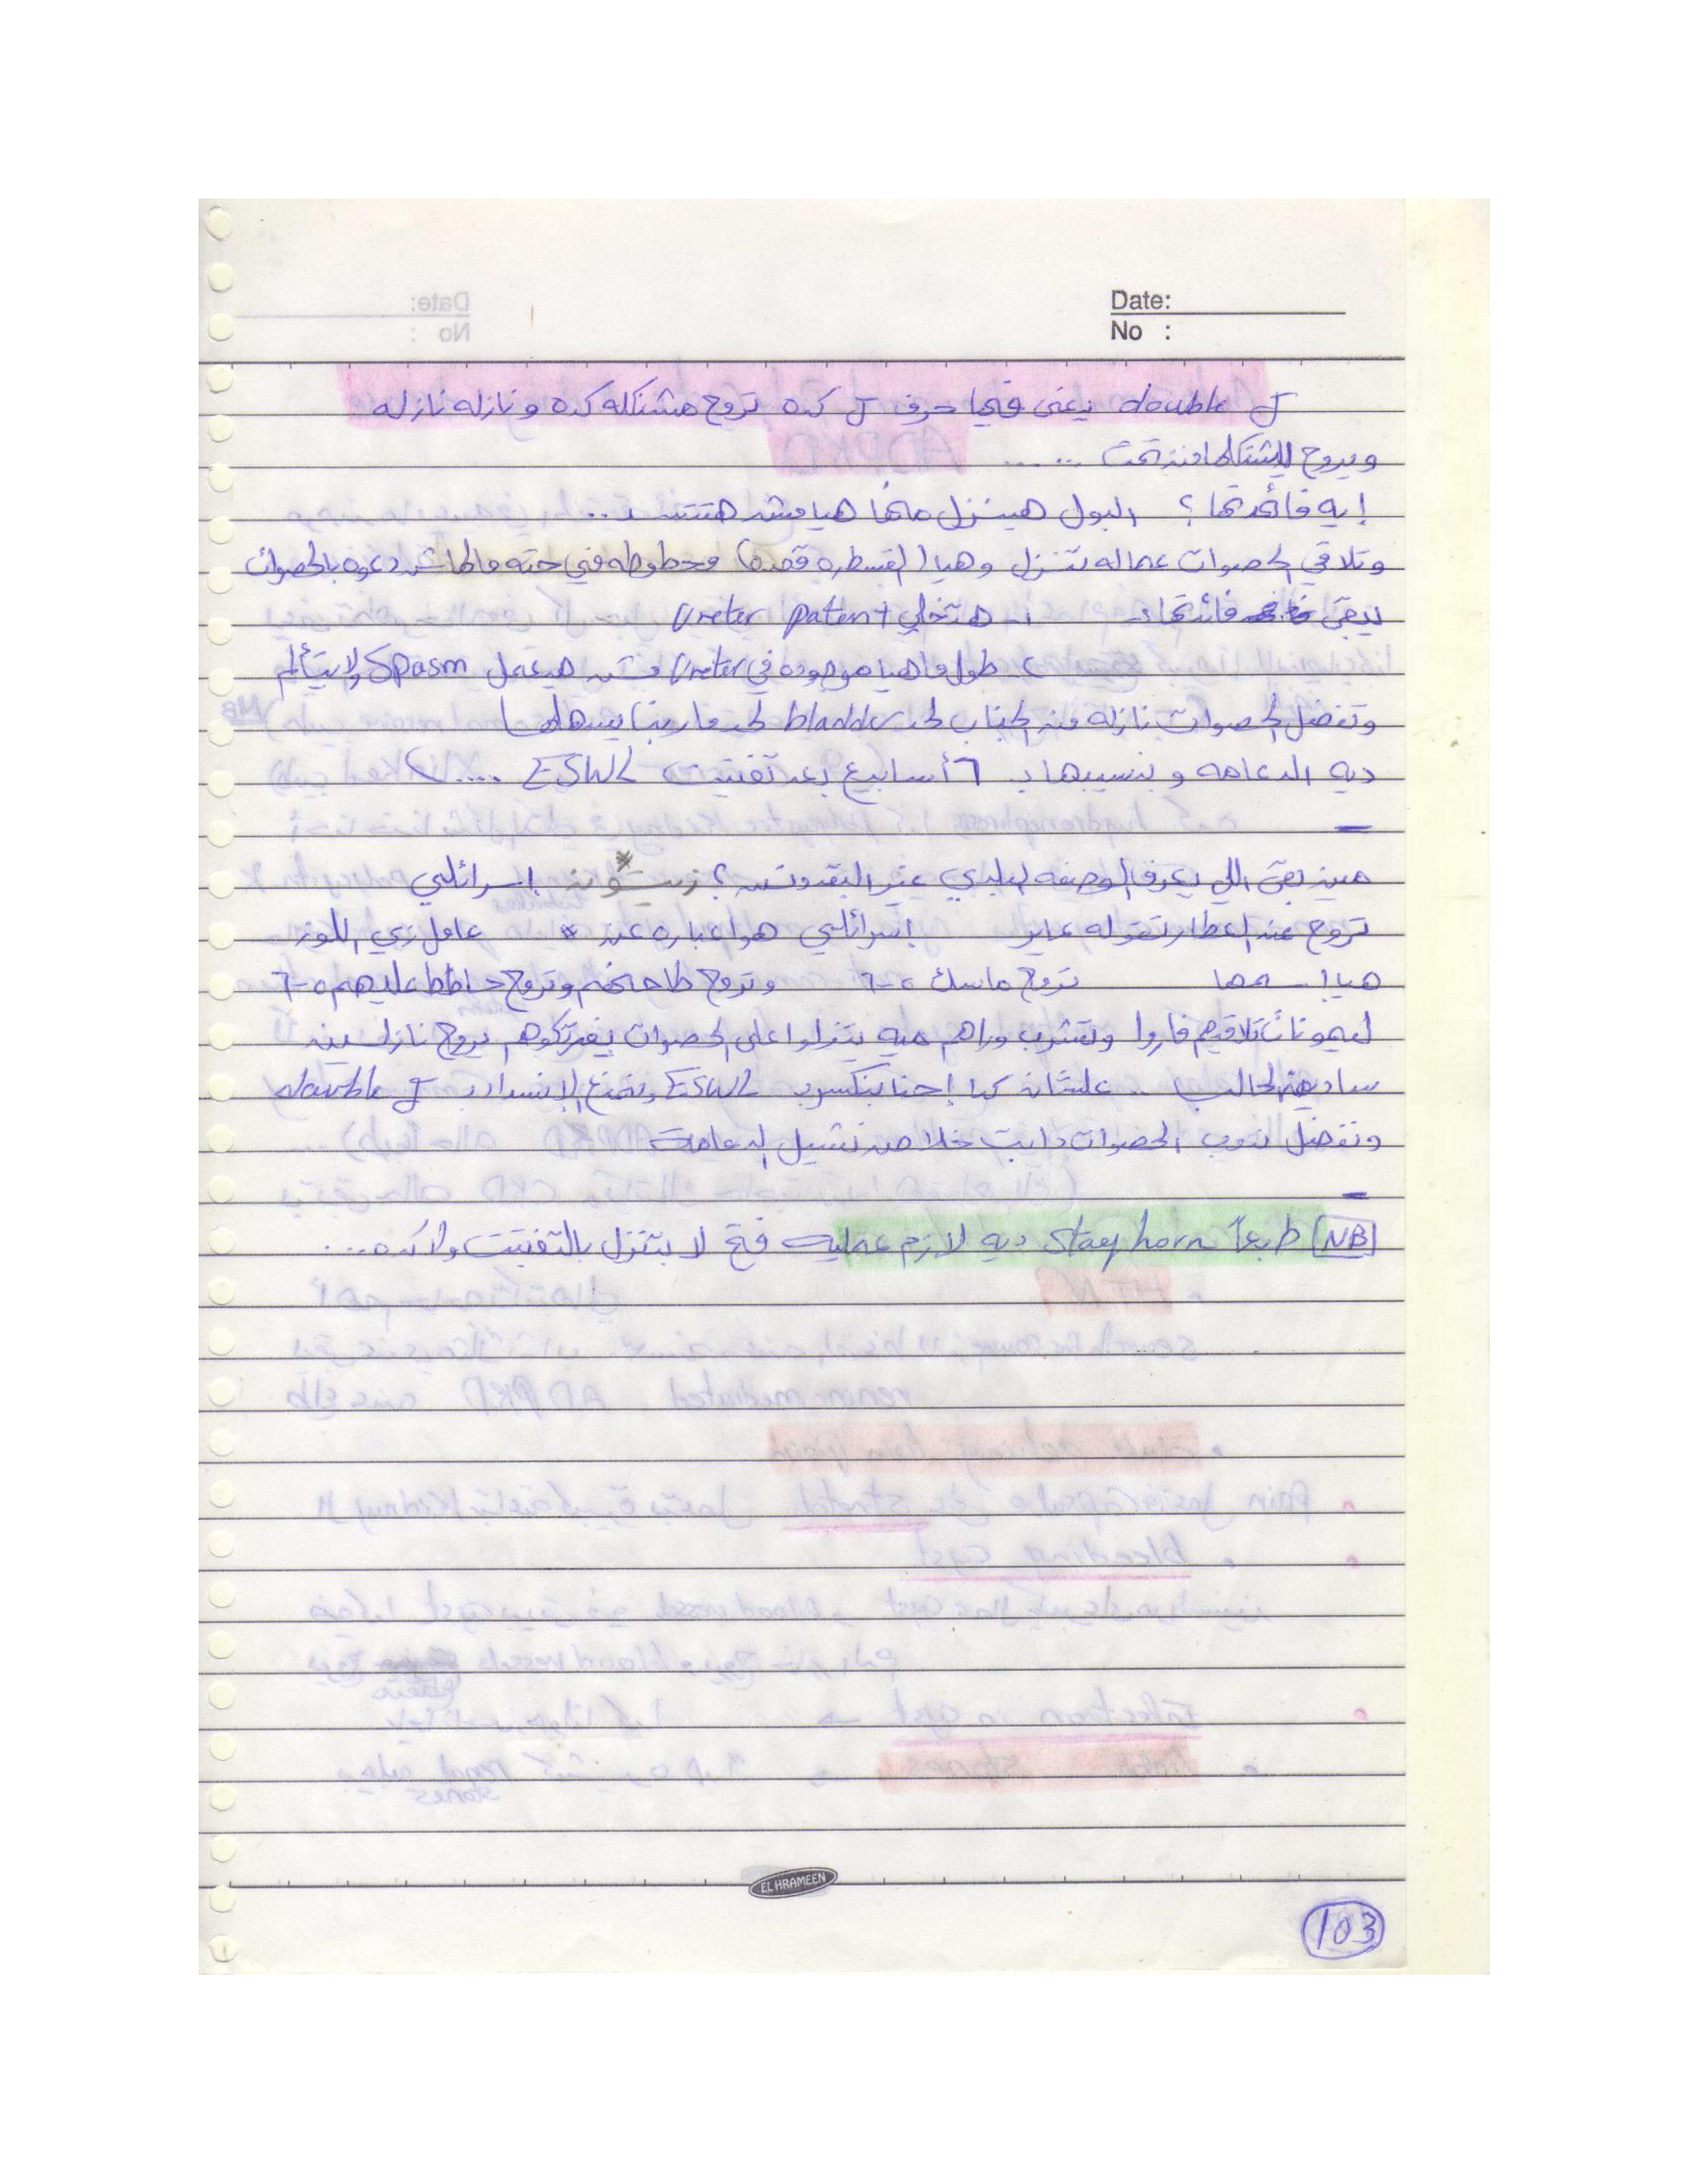 Date:
No :
double J يعني فيها حرف J كده تروح مشنكله كده و نازله نازله
ويروح مشنكلها من تحت .....
إيه فائدتها ؟ البول هينزل منها هيا مش هتتسد ..
وتلاقي الحصوات عماله تنزل وهيا (القسطره قصدي) محطوطه في حته مالهاش دعوه بالحصوات
يبقى فائدتها: ١- هتخلي Ureter patent
٢- طول ما هيا موجوده في Ureter مش هيعمل Spasm ولا يتألم
وتفضل الحصوات نازله من الجناب لحد bladder لحد ما ربنا يسهلها
ديه الدعامه و بنسيبها بـ ٦ أسابيع بعد تفتيت ESWL ....)
مين بقى اللي يعرف الوصفه البلدي غير البقدونس ؟ زيتونه إسرائلي
تروح عند العطار تقوله عايز إسرائلي هوا عباره عن * عامل زي اللوز
هيا اسمها تروح ماسك ٥-٦ وتروح طاحنهم وتروح حاطط عليهم ٥-٦
ليمونات تلاقيهم فاروا وتشرب وراهم ميه ينزلوا على الحصوات يفرتكوهم يروح نازلين
سادين الحالب .. علشان كدا إحنا بنكسر بـ ESWL ونمنع الإنسداد بـ double J
ونفضل ندوب الحصوات دابت خلاص نشيل الدعامة
NB طبعاً Stag horn ديه لازم عمليه فتح لا بتنزل بالتفتيت ولا كده ...
EL HRAMEEN
103